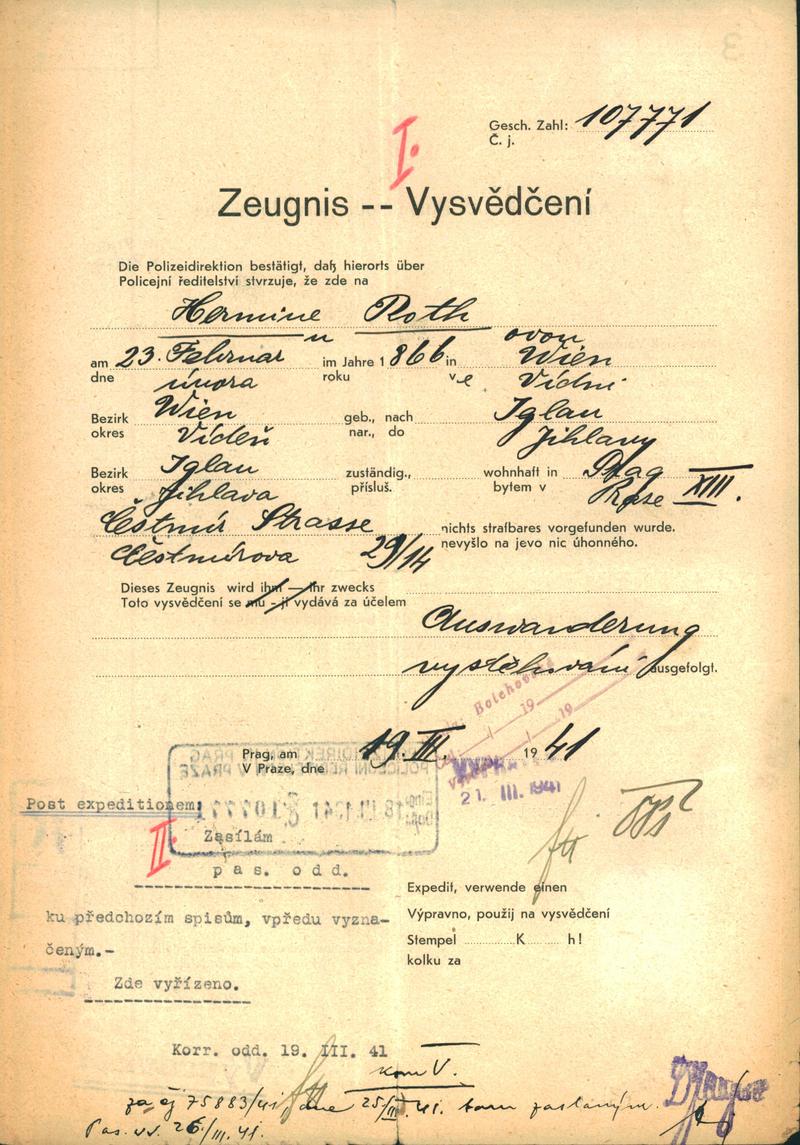 Gesch. Zahl: 107771
Č. j.
I.
Zeugnis -- Vysvědčení
Die Polizeidirektion bestätigt, daß hierorts über
Policejní ředitelství stvrzuje, že zde na
Hermine Roth
ovou
am 23. Februar im Jahre 1866 in Wien
dne února roku v e Vídni
Bezirk Wien geb., nach Iglau
okres Vídeň nar., do Jihlavy
Bezirk Iglau zuständig., wohnhaft in Prag
okres Jihlava přísluš. bytem v Praze XIII.
Čestmír Strasse nichts strafbares vorgefunden wurde.
Čestmírova 29/14 nevyšlo na jevo nic úhonného.
Dieses Zeugnis wird ihm — ihr zwecks
Toto vysvědčení se mu - jí vydává za účelem
Auswanderung
vystěhování ausgefolgt.
Prag, am 19. III. 1941
V Praze, dne
21. III. 1941
Post expeditionem:
II.
Zasílám
pas. odd.
ku předchozím spisům, vpředu vyzna-
čeným.-
Zde vyřízeno.
Expedit, verwende einen
Výpravno, použij na vysvědčení
Stempel K h!
kolku za
Korr. odd. 19. III. 41
kom V.
za čj 75883/41 dne 25/III. 41. tam zaslaným.
Pas. 26/III. 41.